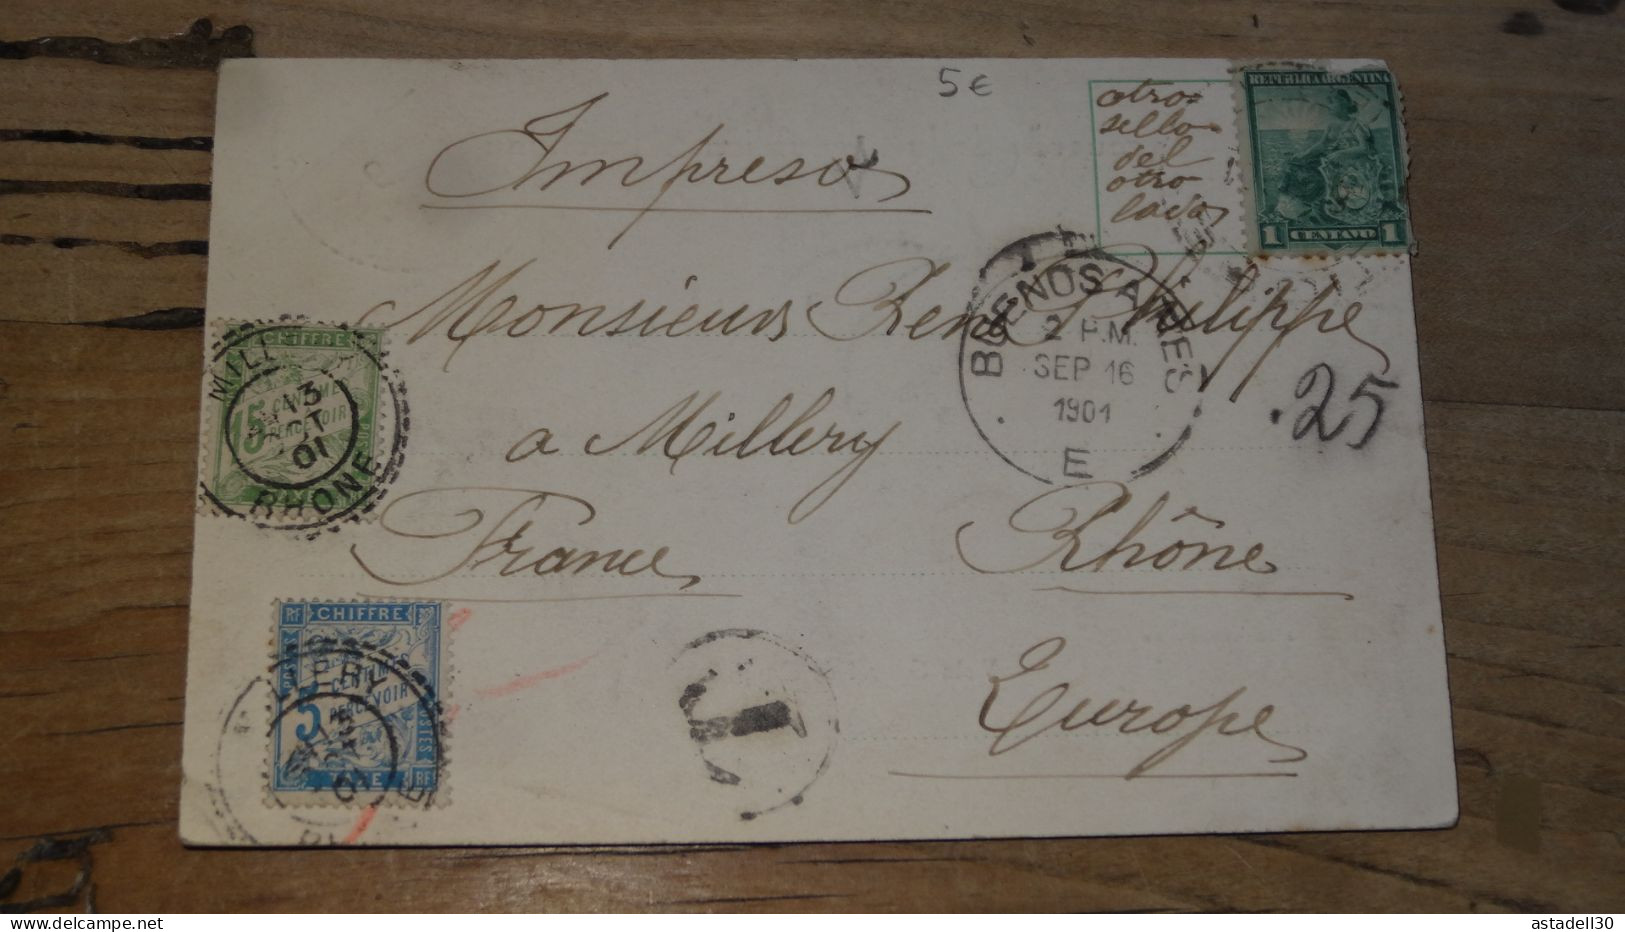 5€
Impreso
otro
sello
del
otro
lado
REPUBLICA ARGENTINA
1 CENTAVO 1
Monsieur René Philippe
BUENOS AIRES
2 P.M.
SEP 16
1901
E
.25
a Millery
CHIFFRE
15 CENTIMES
PERCEVOIR
3
OCT
01
RHONE
France Rhône
Europe
T
RF CHIFFRE
POSTES
5 CENTIMES
PERCEVOIR
POSTES
TAXE RF
delcampe.net
astadell30